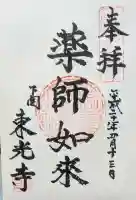 奉拝
平成二十年五月十三日
薬師如来
下関
東光寺